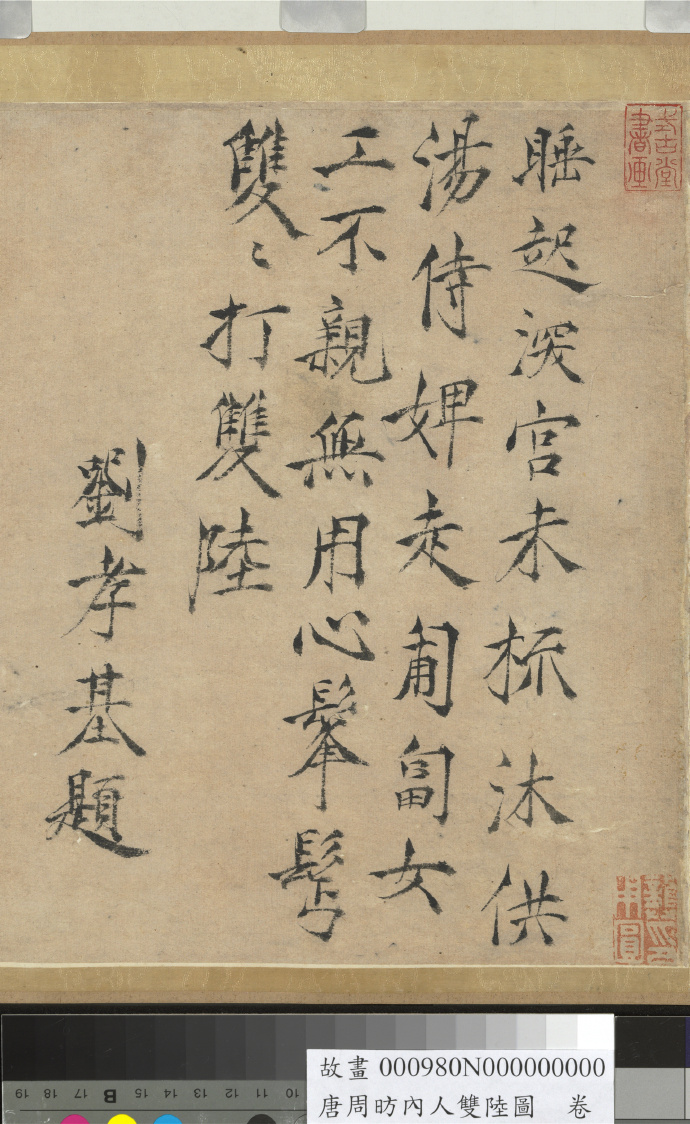 睡起深宮未梳沐供
湯侍婢走匍匐女
工不親無用心鬇髻
雙〻打雙陸
劉孝基題
式古堂
書画
故畫 000980N000000000
唐周昉內人雙陸圖 卷
19 18 17 B 15 14 13 12 11 10